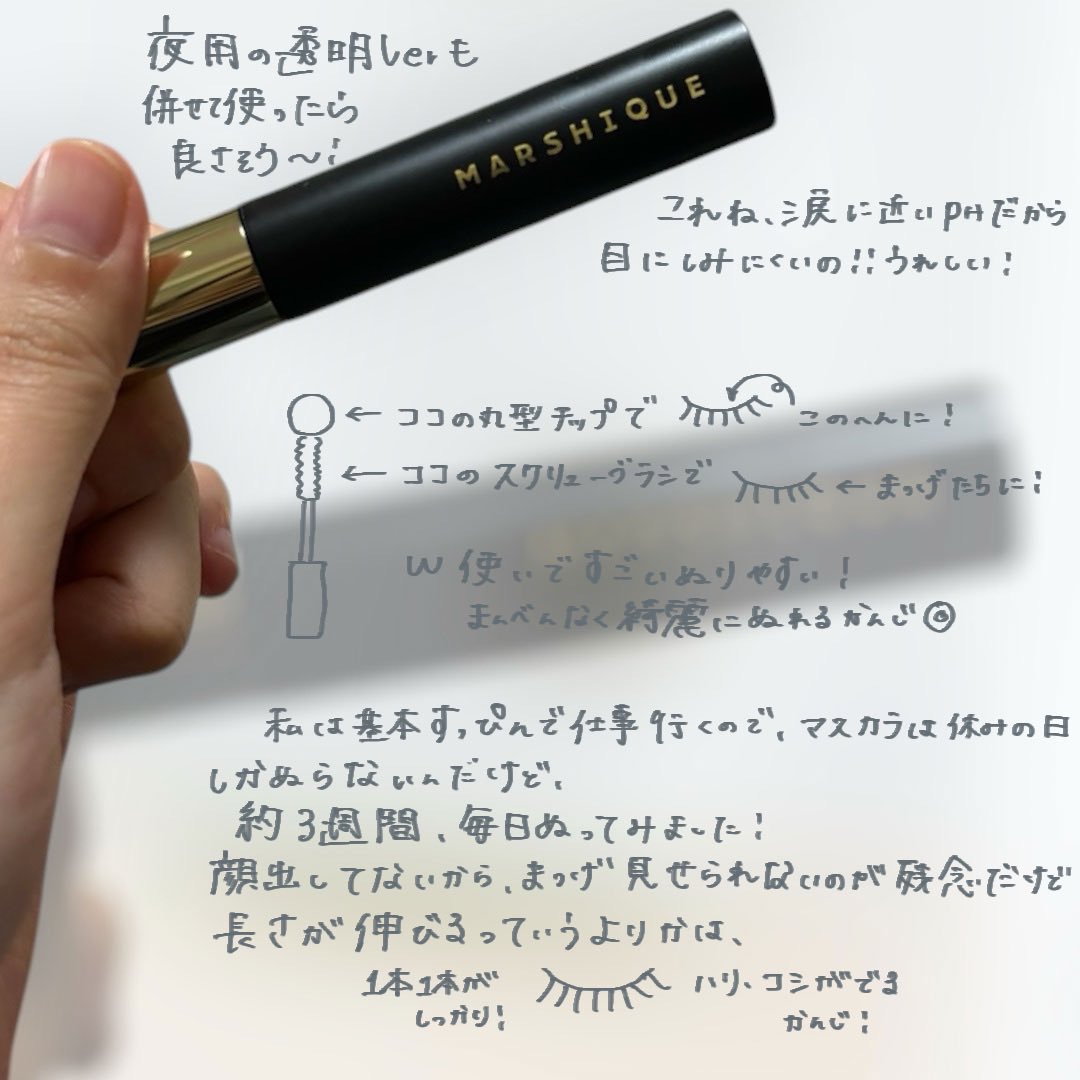 夜用の透明Verも
併せて使ったら
良さそう〜!
MARSHIQUE
これね、涙に近いpHだから
目にしみにくいの!!うれしい!
← ココの丸型チップで このへんに!
← ココのスクリューブラシで ← まつげたちに!
W使いですごいぬりやすい!
まんべんなく綺麗にぬれるかんじ◎
私は基本すっぴんで仕事行くので、マスカラは休みの日
しかぬらないんだけど、
約3週間、毎日ぬってみました!
顔出ししてないから、まつげ見せられないのが残念だけど
長さが伸びるっていうよりかは、
1本1本が
しっかり!
ハリ、コシがでる
かんじ!